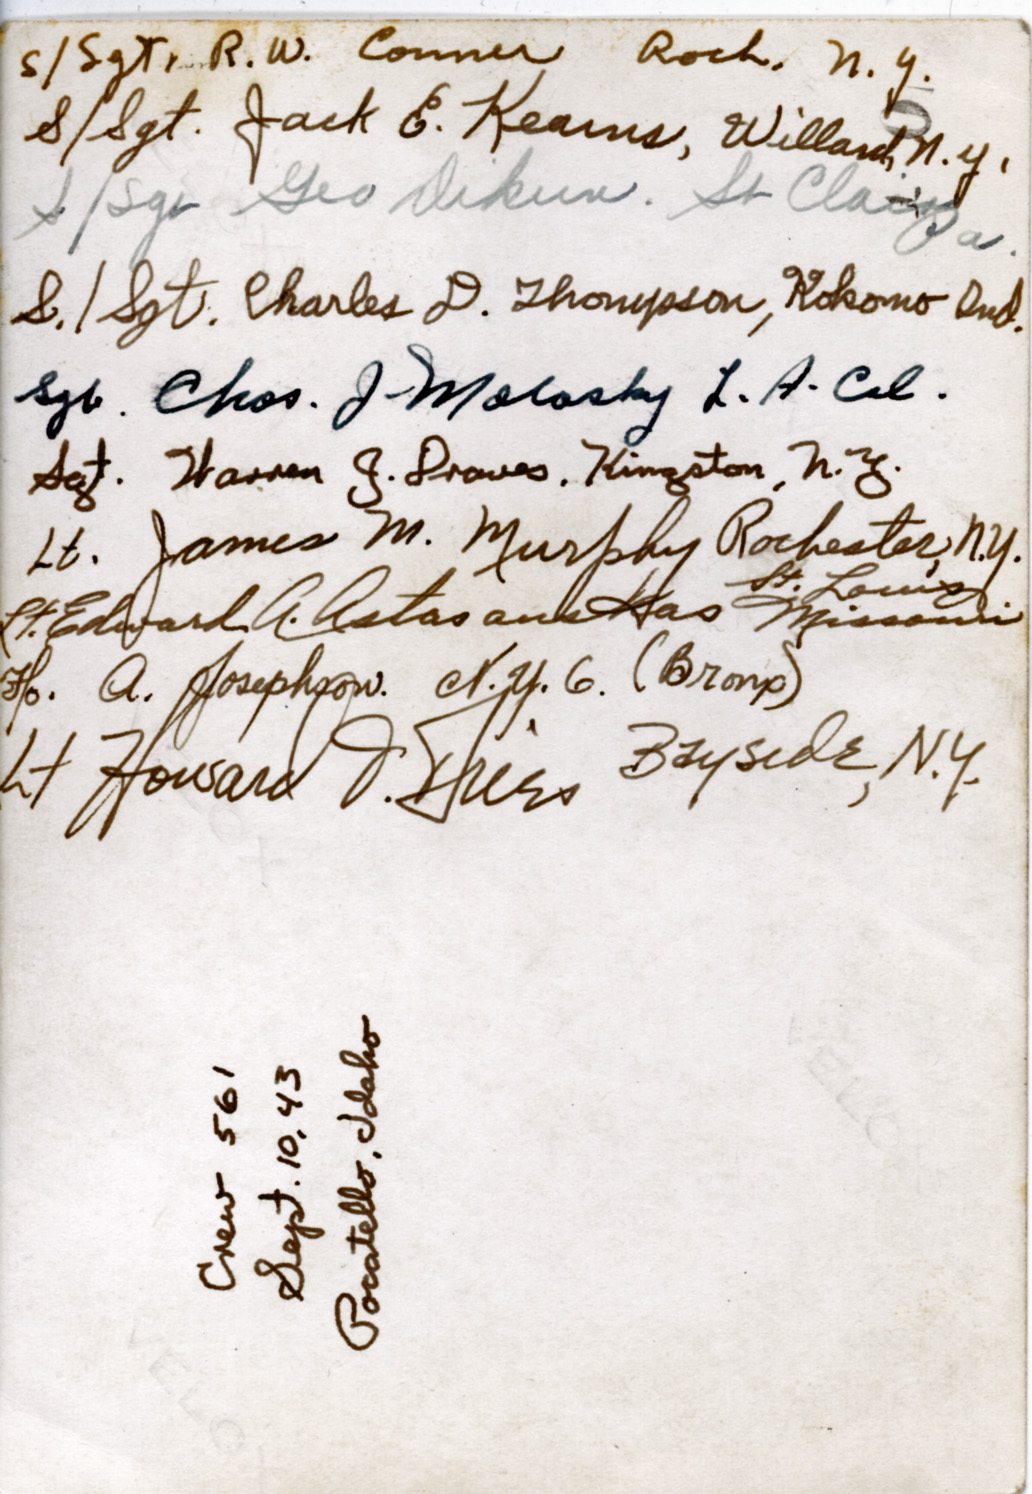 S/Sgt. R.W. Conner Roch. N.Y.
S/Sgt. Jack E. Kearns, Willard, N.Y.
S/Sgt Geo Dikun. St Clair Pa.
S./Sgt. Charles D. Thompson, Kokomo Ind.
Sgt. Chas. J. Malosky L.A. Cal.
Sgt. Warren J. Draves. Kingston, N.Y.
Lt. James M. Murphy Rochester, N.Y.
Lt. Edward A. Astasauskas St. Louis
Missouri
F/o. A. Josephson. N.Y.C. (Bronx)
Lt Howard J. Bayside, N.Y.
Crew 561
Sept. 10, 43
Pocatello, Idaho
VELOX